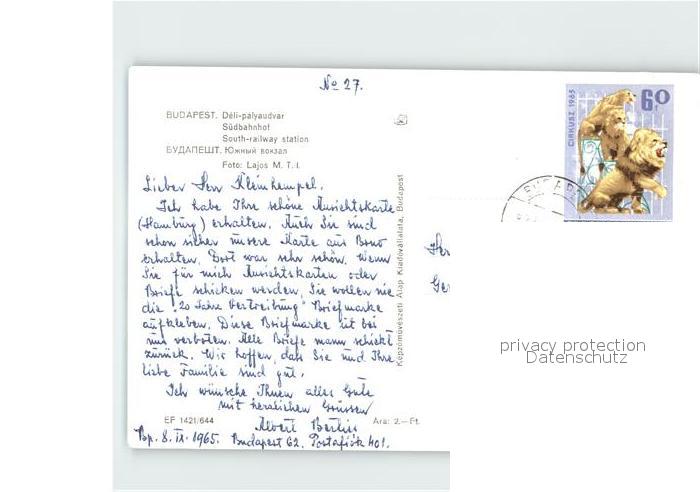 No 27.
BUDAPEST. Déli-pályaudvar
Südbahnhof
South-railway station
БУДАПЕШТ. Южный вокзал
Foto: Lajos M. T. I.
CIRKUSZ 1965
60
BUDAPE
Lieber Herr Kleinhempel.
Ich habe Ihre schöne Ansichtskarte
(Hamburg) erhalten. Auch Sie sind
schon sicher unsere Karte aus Brno
erhalten. Dort war sehr schön. Wenn
Sie für mich Ansichtskarten oder
Briefe schicken werden, Sie wollen nie
die „20 Jahre Vertreibung" Briefmarke
aufkleben. Diese Briefmarke ist bei
uns verboten. Alle Briefe mann schickt
zurück. Wir hoffen, das Sie und Ihre
liebe Familie sind gut.
Ich wünsche Ihnen alles Gute
mit herzlichen Grüssen
Albert
Bp. 8. IX. 1965. Budapest 62. Postafiók 401.
Képzőművészeti Alap Kiadóvállalata, Budapest
EF 1421/644
Ára: 2.—Ft
privacy protection
Datenschutz